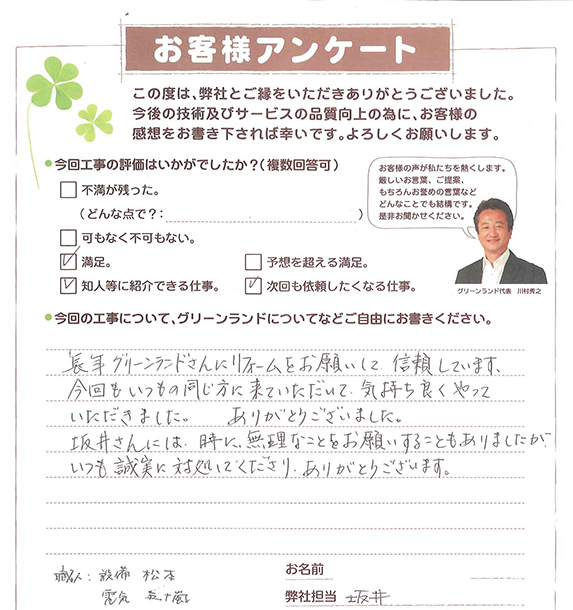 お客様アンケート
この度は、弊社とご縁をいただきありがとうございました。
今後の技術及びサービスの品質向上の為に、お客様の
感想をお書き下されば幸いです。よろしくお願いします。
今回工事の評価はいかがでしたか？（複数回答可）
不満が残った。
（どんな点で？： ）
可もなく不可もない。
満足。
予想を超える満足。
知人等に紹介できる仕事。
次回も依頼したくなる仕事。
お客様の声が私たちを熱くします。
厳しいお言葉、ご提案、
もちろんお誉めの言葉など
どんなことでも結構です。
是非お聞かせください。
グリーンランド代表　川村秀之
今回の工事について、グリーンランドについてなどご自由にお書きください。
長年グリーンランドさんにリフォームをお願いして、信頼しています。
今回もいつもの同じ方に来ていただいて、気持ち良くやって
いただきました。　ありがとうございました。
坂井さんには、時に、無理なことをお願いすることもありましたが、
いつも誠実に対処してくださり、ありがとうございます。
職人：設備 松本
電気 五十嵐
お名前
弊社担当 坂井